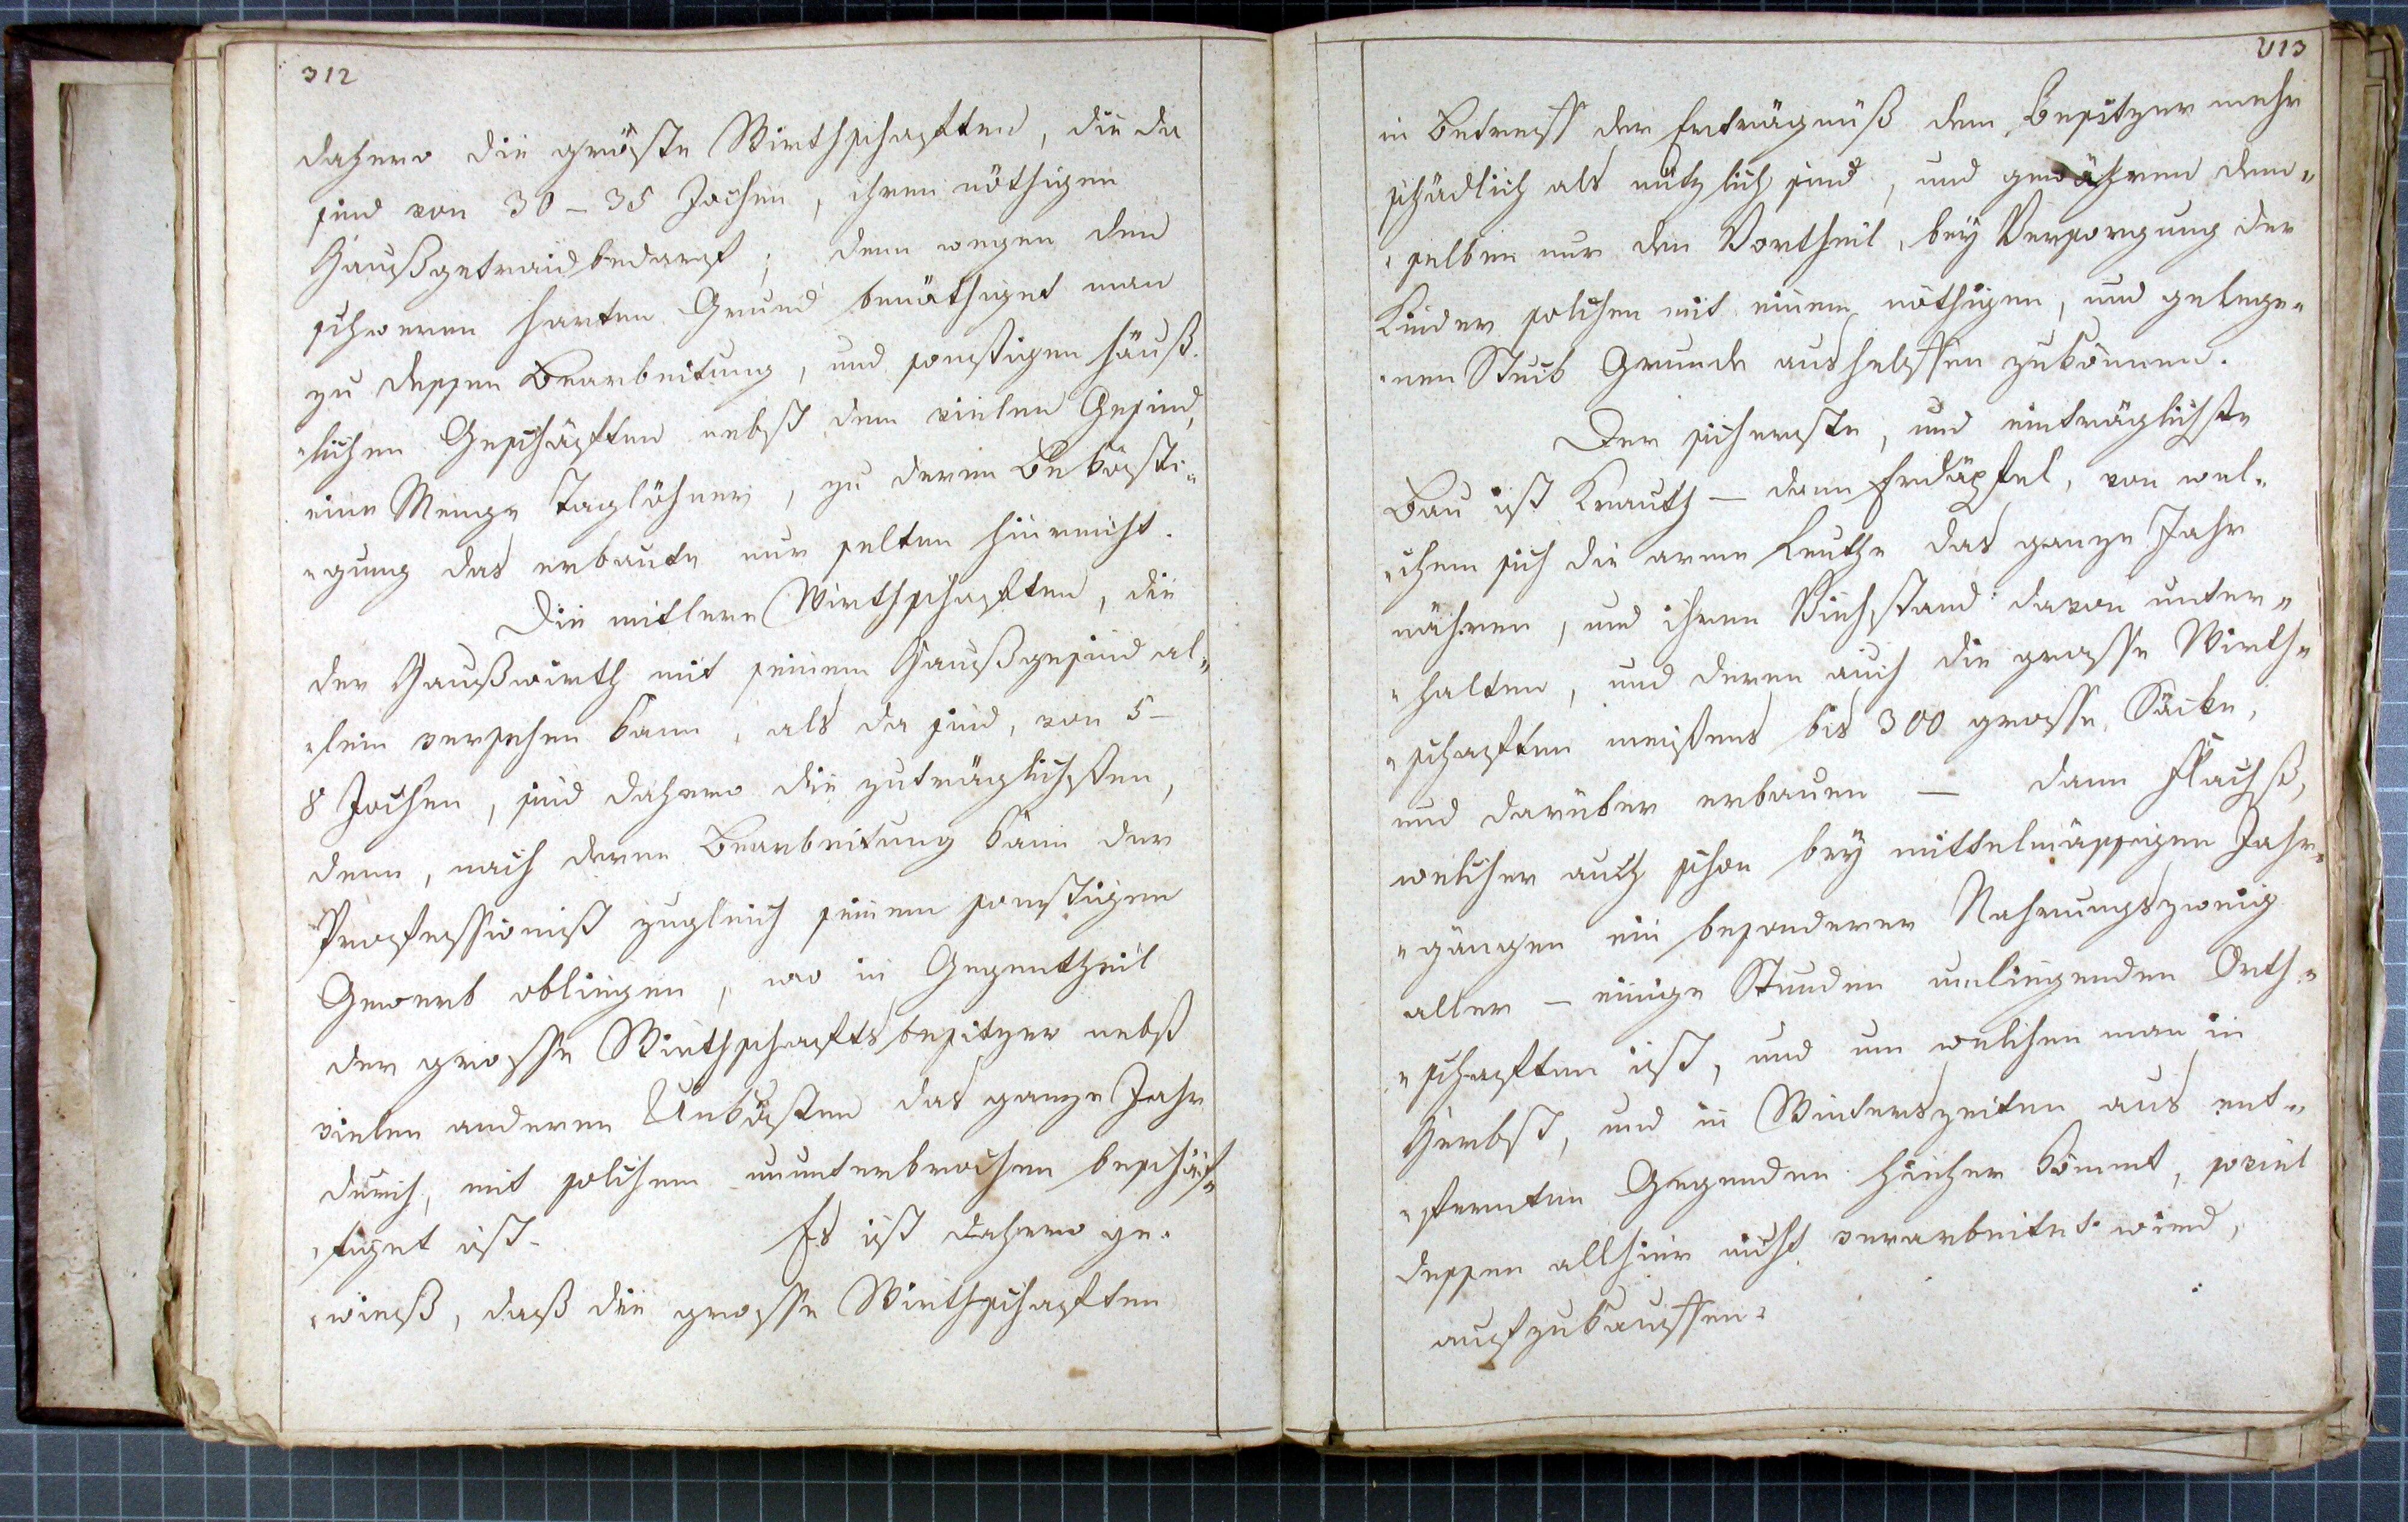 312
dahero die gröste Wirthschaften, die da
sind von 30 – 35 Jochen, ihren nöthigen
Haußgetraidbedarf; denn wegen den
schweren harten Grund benöthiget man
zu dessen Bearbeitung, und sonstigen häuß-
lichen Geschäften nebst dem vielen Gesind,
eine Menge Taglöhner, zu deren Beköste-
gung das erbaute nur selten hinreicht.
Die mitlere Wirthschaften, die
der Haußwirth mit seinem Haußgesind al-
lein versehen kann, als da sind, von 5 –
8 Jochen, sind dahero die zuträglichsten,
denn, nach deren Bearbeitung kann der
Professionist zugleich seinem sonstigen
Gewerb obliegen, wo in Gegentheil
der grosse Wirthschaftsbesitzer nebst
vielen anderen Unkösten das ganze Jahr
durch, mit solchem ununterbrochen beschäf-
tiget ist. Es ist dahero ge-
wiß, daß die grosse Wirthschaften
313
in Betreff der Erträgnüß dem Besitzer mehr
schädlich als nützlich sind, und gewähren dem-
selben nur den Vortheil, bey Versorgung der
Kinder solchen mit einem nöthigen, und gelege-
nen Stuck Grunde aushelffen zukönnen.
Der sicherste, und einträglichste
Bau ist Krauth – dann Erdäpfel, von wel-
chem sich die arme Leuthe das ganze Jahr
nähren, und ihren Viehstand davon unter-
halten, und deren auch die grosse Wirth-
schaften meistens bis 300 grosse Säcke,
und darüber erbauen – dann Flachß,
welcher auch schon bey mittelmässigen Jahr-
gängen ein besonderer Nahrungszweig
aller – einige Stunden umliegenden Orth-
schaften ist, und um welchen man in
Herbst, und in Winterszeiten aus ent-
fernten Gegenden hieher kömmt, soviel
dessen allhier nicht verarbeitet wird,
aufzukauffen.